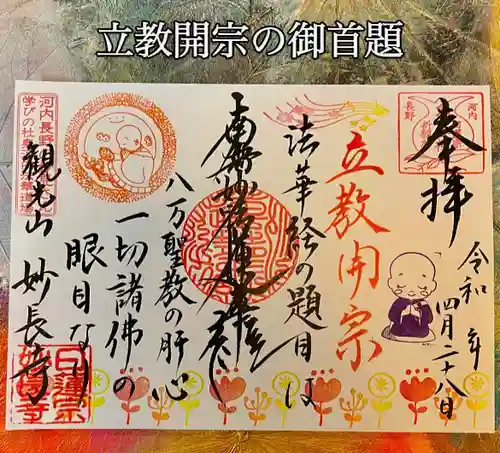 立教開宗の御首題
河内
長野
奉拝
令和 年
四月二十八日
立教開宗
法華経の題目は
南無妙法蓮華経
八万聖教の肝心
一切諸佛の
眼目なり
観光山 妙長寺
河内長野
学びの杜
日蓮宗
妙長寺